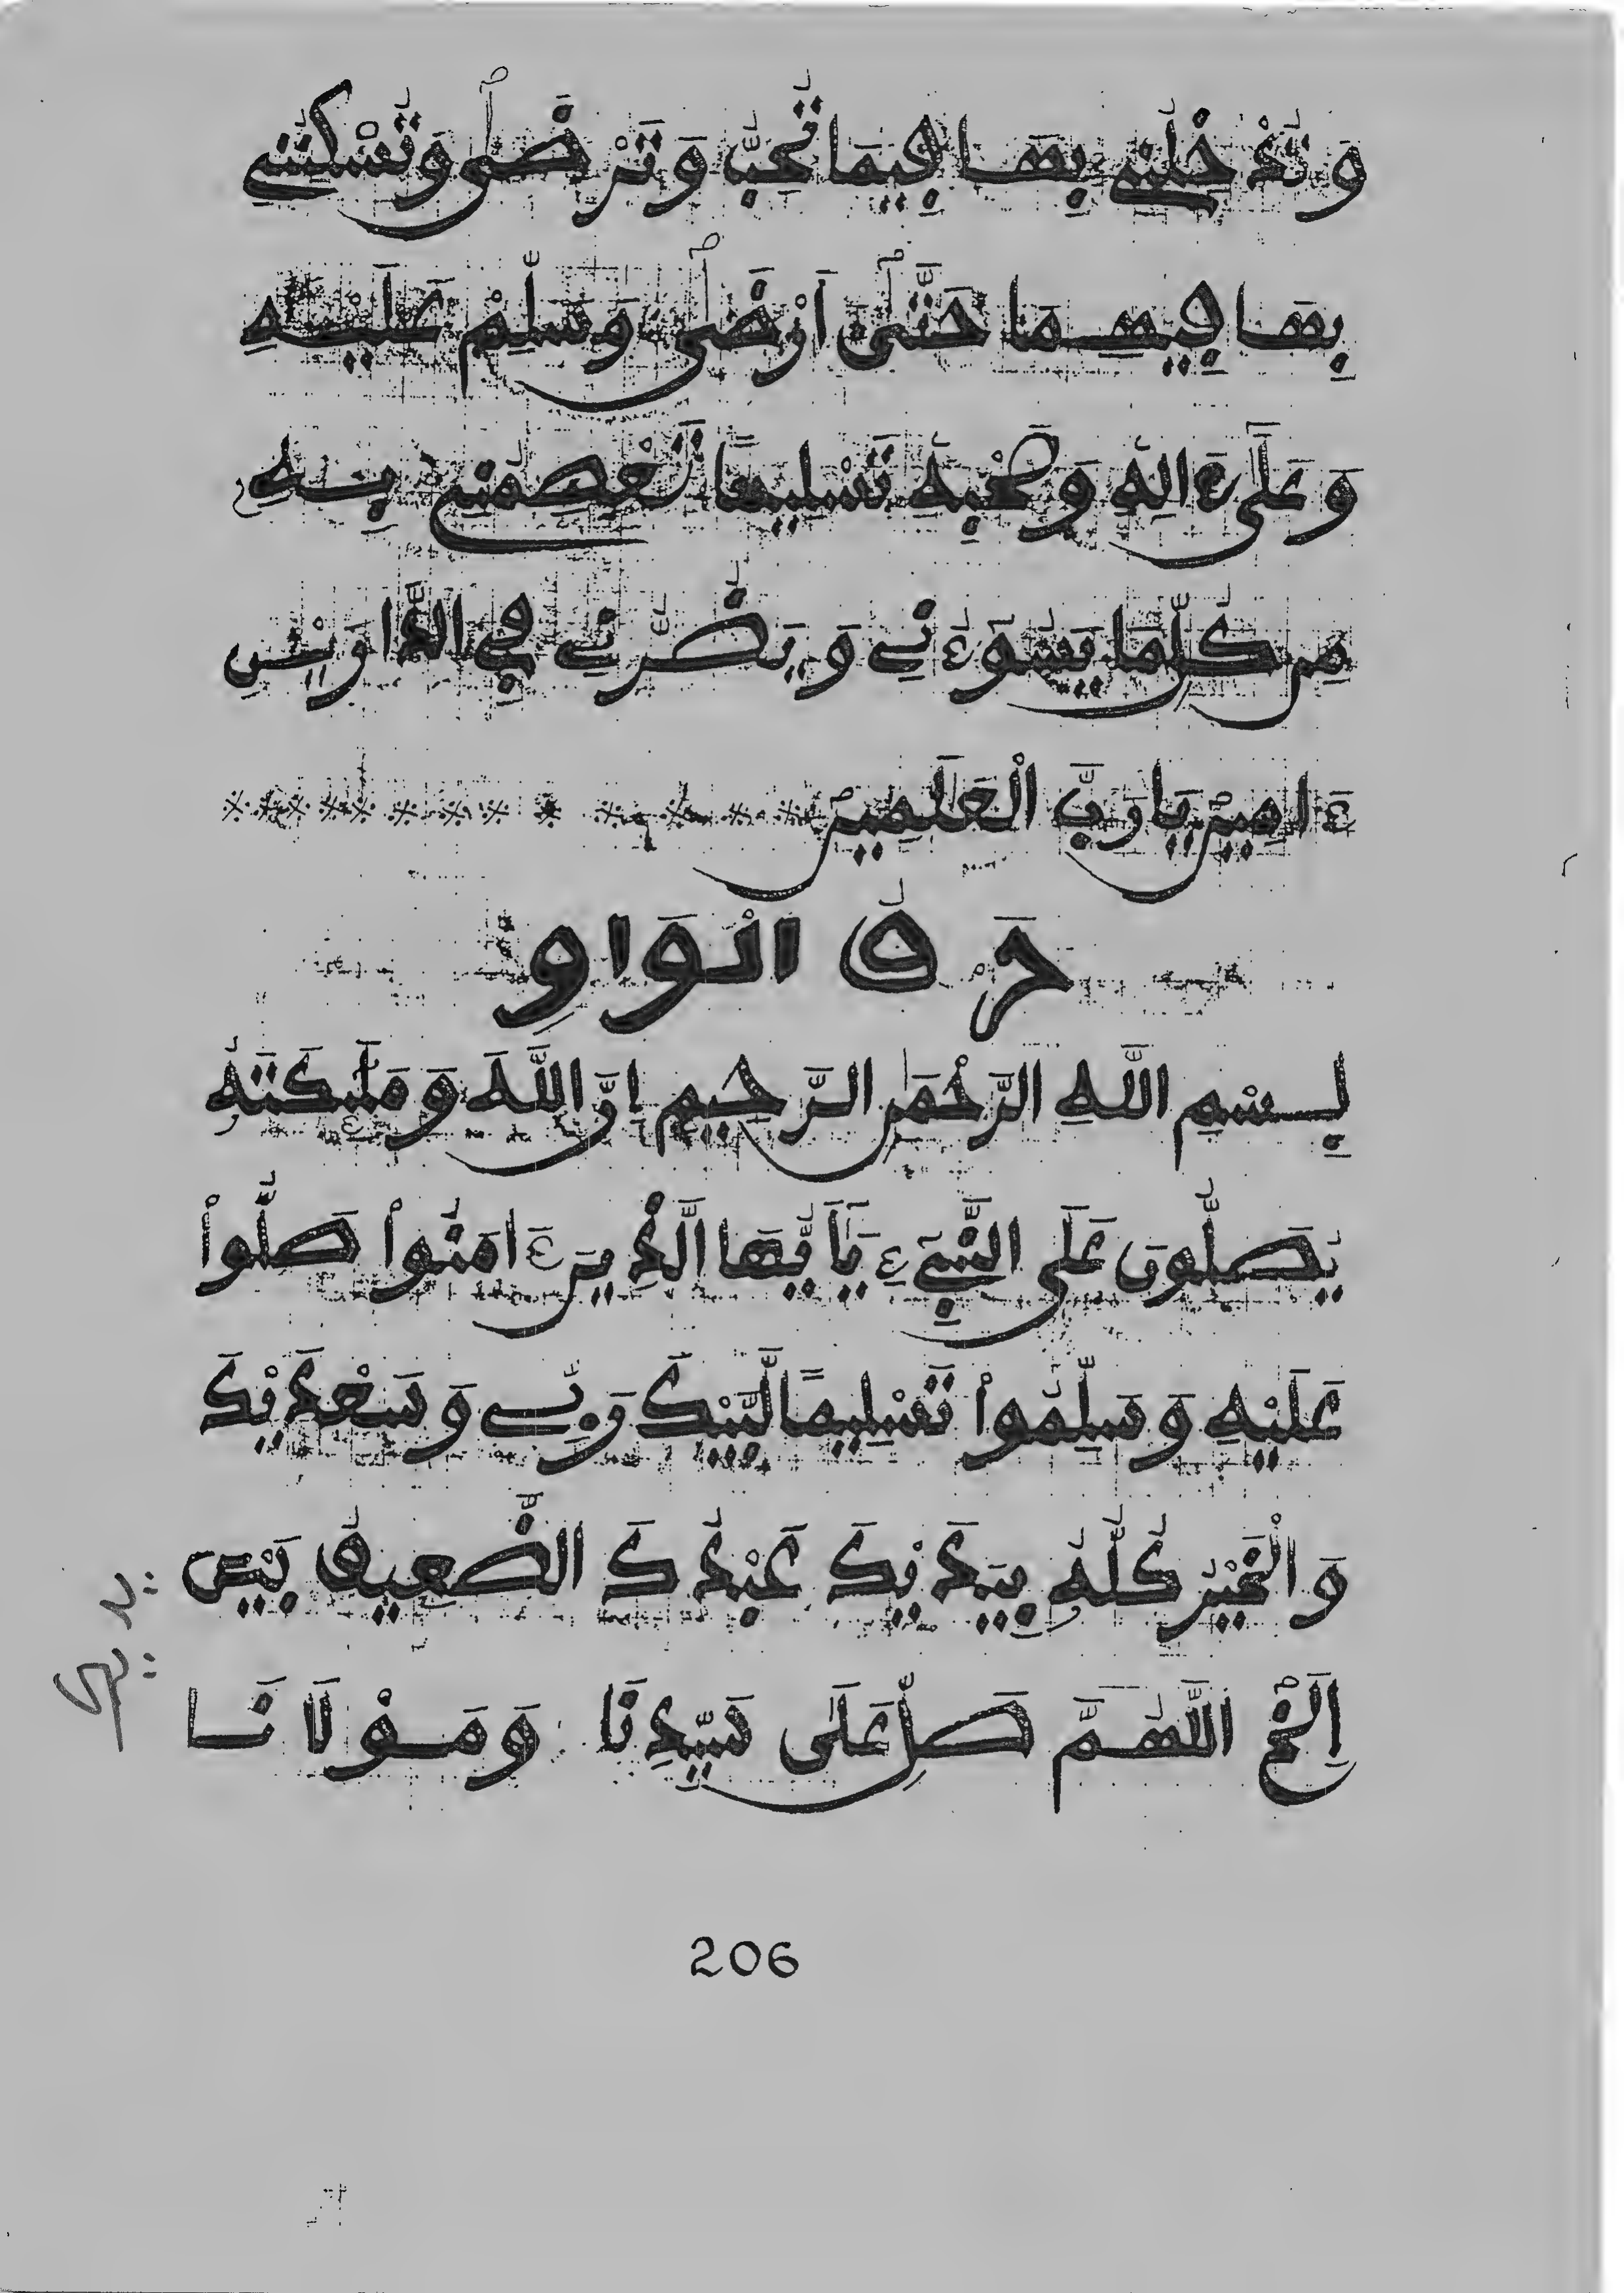 وَتُدْخِلُنِي بِهَا فِيمَا تُحِبُّ وَتَرْضَى وَتُسْكِنُنِي
بِهَا فِيهِمَا حَتَّى أَرْضَى وَسَلِّمْ عَلَيْهِ
وَعَلَى ءَالِهِ وَصَحْبِهِ تَسْلِيمًا تَعْصِمُنِي بِهِ
مِن كُلِّ مَا يَسُوءُنِي وَيَضُرُّنِي فِي الدَّارَيْنِ
ءَامِينَ يَا رَبَّ الْعَلَمِينَ
حَرْفُ الْوَاوِ
بِسْمِ اللَّهِ الرَّحْمَنِ الرَّحِيمِ إِنَّ اللَّهَ وَمَلَئِكَتَهُ
يُصَلُّونَ عَلَى النَّبِيِّ يَأَيُّهَا الَّذِينَ ءَامَنُوا صَلُّوا
عَلَيْهِ وَسَلِّمُوا تَسْلِيمًا لَّبَّيْكَ رَبِّي وَسَعْدَيْكَ
وَالْخَيْرُ كُلُّهُ بِيَدَيْكَ عَبْدُكَ الضَّعِيفُ بَيْنَ
يديك
إِلَخْ اللَّهُمَّ صَلِّ عَلَى سَيِّدِنَا وَمَوْلَانَا
206